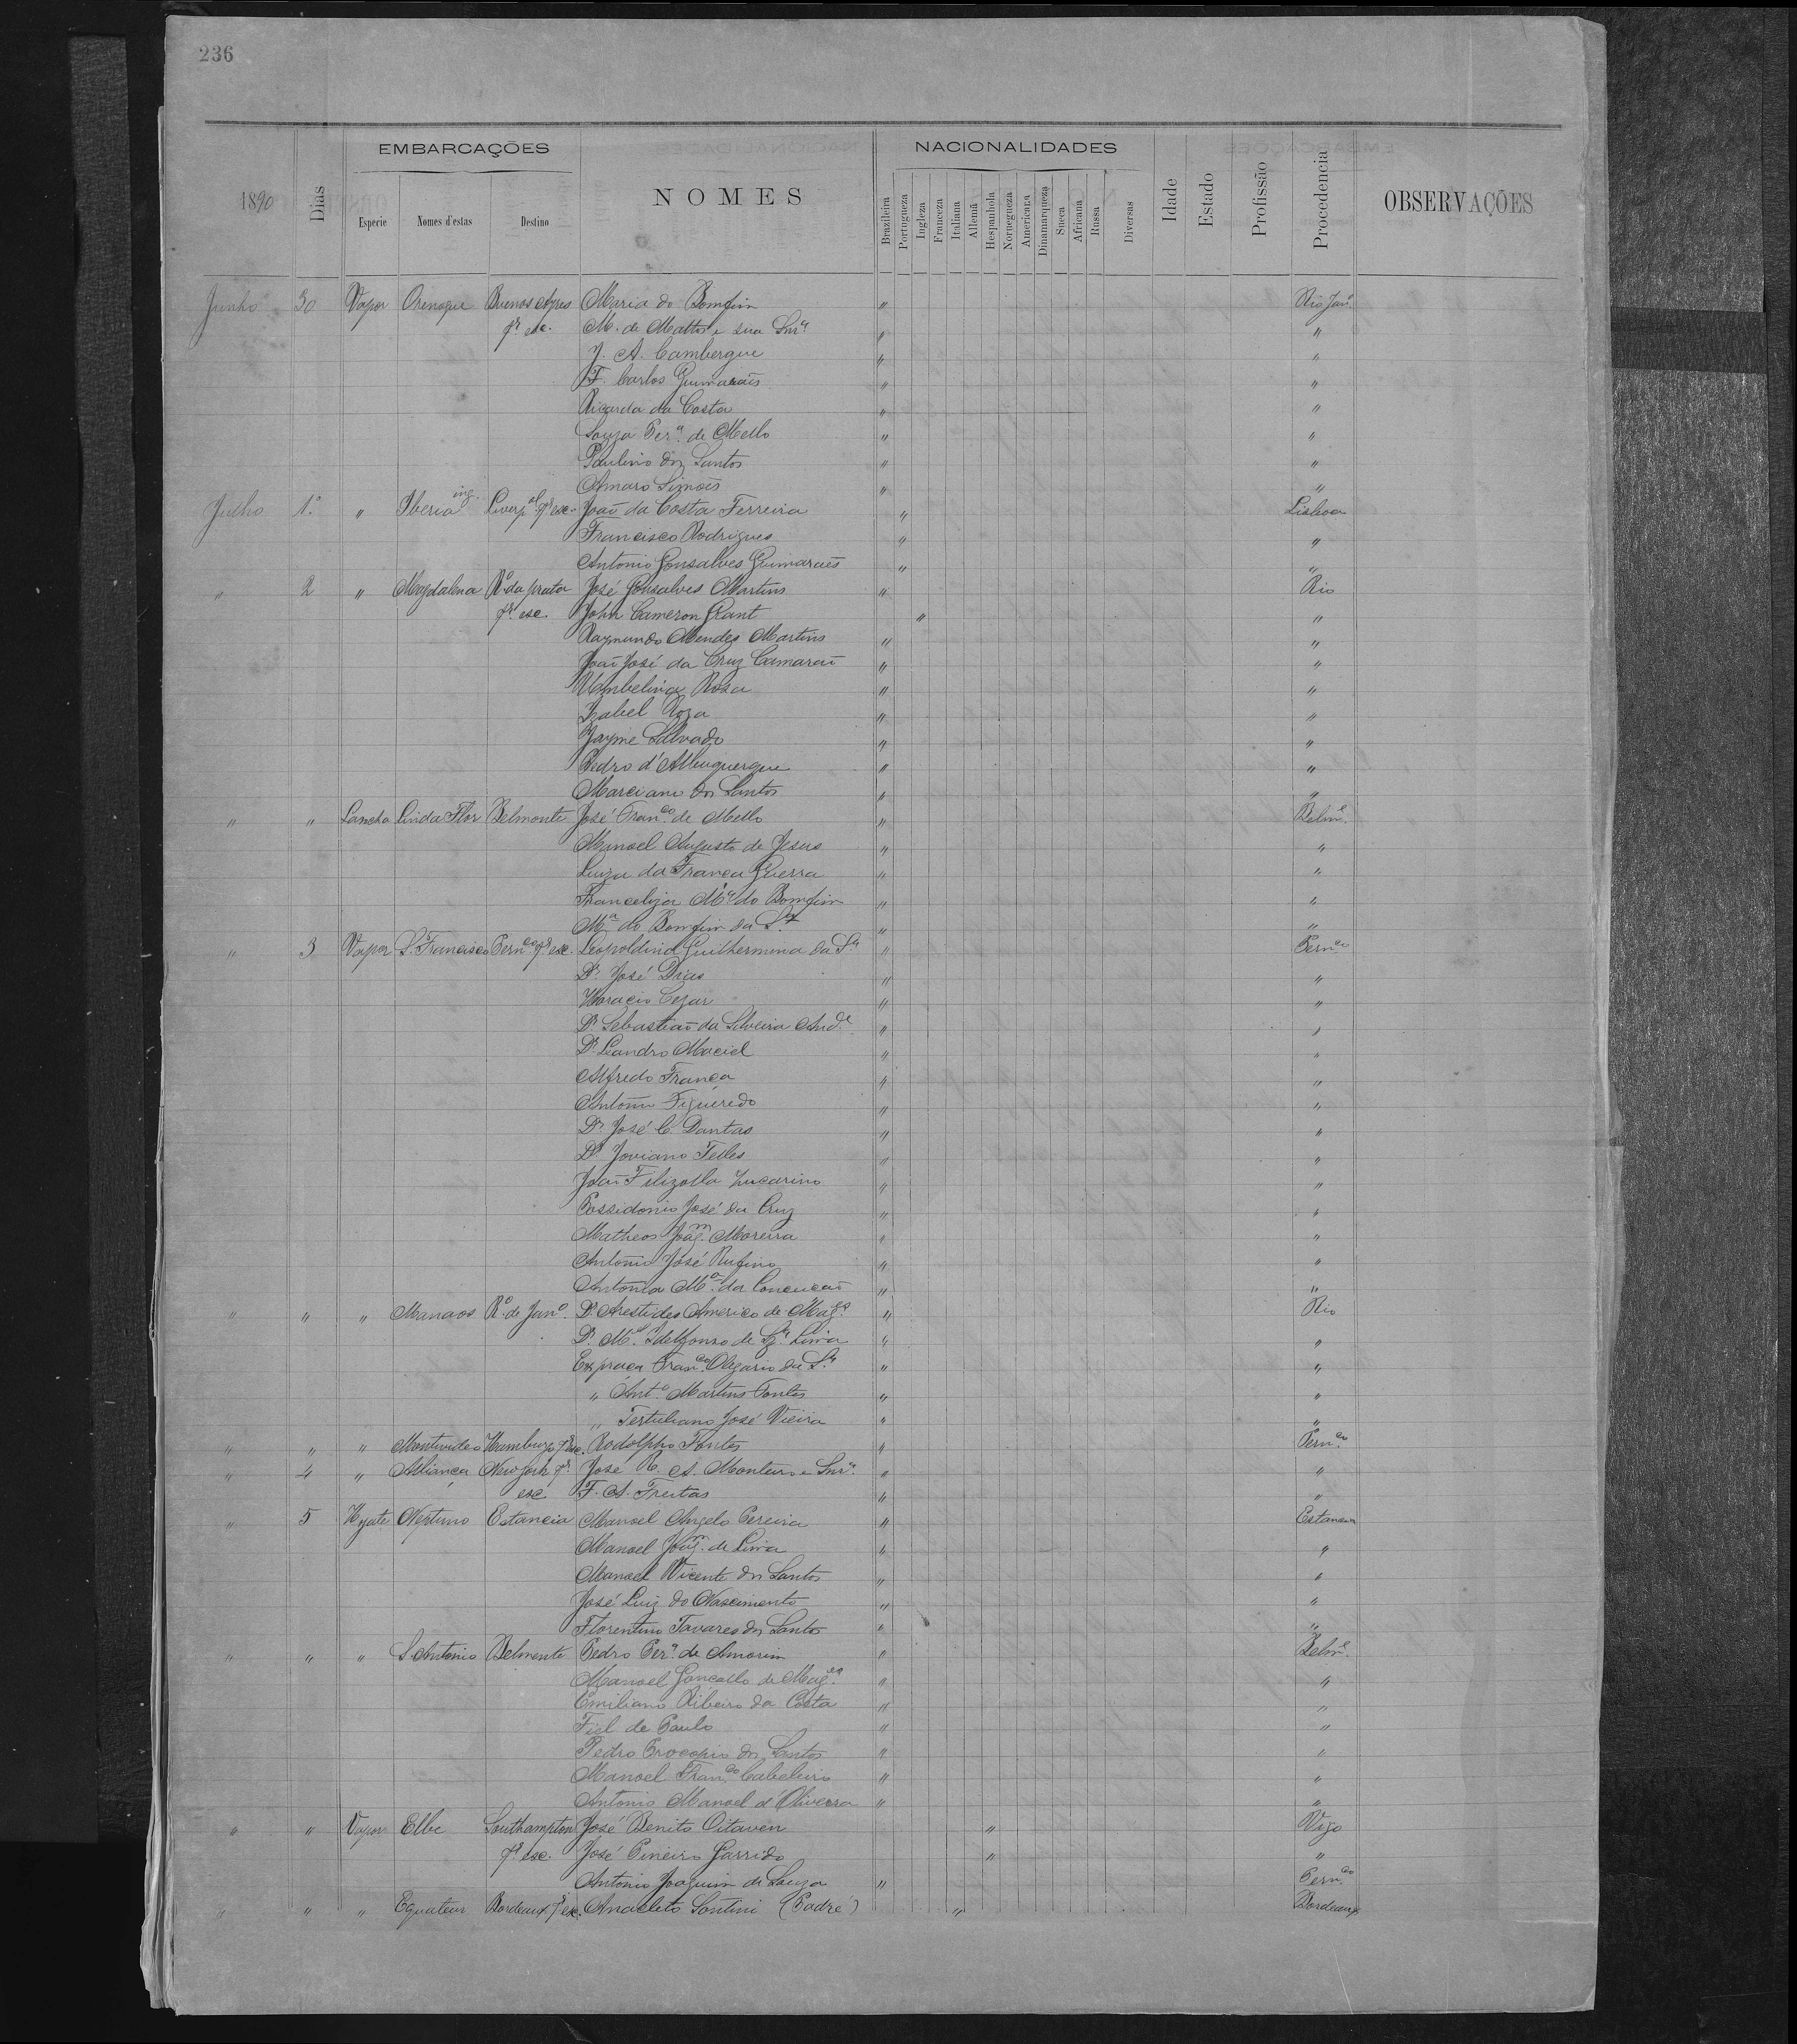 236
EMBARCAÇÕES NACIONALIDADES
1890 Dias Especie Nomes d'estas Destino NOMES Brazileira Portugueza Ingleza Franceza Italiana Allemã Hespanhola Nornegueza Americana Dinamarqueza Sueca Africana Russa Diversas Idade Estado Profissão Procedencia OBSERVAÇÕES
Junho 30 Vapor Orenoque Buenos Ayres Maria do Bomfim " Rio Janº
pr esc. M. de Mattos e sua Snrª " "
J. A. Cambergue " "
F. Carlos Guimarães " "
Ricarda da Costa " "
Souza Perª de Mello " "
Paulino dos Santos " "
Amaro Simões " "
Julho 1º " Iberia ing. Liverpol pr esc. João da Costa Ferreira " Lisboa
Francisco Rodrigues " "
Antonio Gonsalves Guimarães " "
" 2 " Magdalena Rº da prata José Gonsalves Martins " Rio
pr esc. John Cameron Grant " "
Raymundo Mendes Martins " "
João José da Cruz Camarão " "
Umbelina Rosa " "
Izabel Roza " "
Jayme Salvado " "
Pedro d'Albuquerque " "
Marciano dos Santos " "
" " Lancha Linda Flor Belmonte José Franco de Mello " Belme
Manoel Augusto de Jesus " "
Luiza da França Guerra " "
Franceliza Mª do Bomfim " "
Mª do Bomfim da Sª " "
" 3 Vapor S. Francisco Pernco pr esc. Leopoldina Guilhermina da Sª " Pernco
Dr José Dias " "
Horacio Cezar " "
Dr Sebastião da Silveira Ande " "
Dr Leandro Maciel " "
Alfredo França " "
Antonio Figueredo " "
Dr José C. Dantas " "
Dr Joviano Telles " "
João Filizolla Zucarino " "
Possidonio José da Cruz " "
Matheos Joaqm Moreira " "
Antonio José Rufino " "
Antonia Mª da Conceição " "
" " " Manaos Rº de Janº Dr Arestides Americo de Mages " Rio
Dr Mel Idelfonso de Sza Lima " "
Ex praça Franco Olegario da Sª " "
" Antº Martins Fontes " "
" Tertuliano José Vieira " "
" " " Montevideo Hamburgo pr esc. Rodolpho Fontes " Pernco
" 4 " Alliança New York pr José R. A. Monteiro e Snrª " "
esc F. A. Freitas " "
" 5 Hyate Neptuno Estancia Manoel Angelo Pereira " Estancia
Manoel Joaqm de Lima " "
Manoel Vicente dos Santos " "
José Luiz do Nascimento " "
Florentino Tavares dos Santos " "
" " " S. Antonio Belmonte Pedro Perª de Amorim " Belme
Manoel Goncallo de Mages " "
Emiliano Ribeiro da Costa " "
Fiel de Paulo " "
Pedro Procopio dos Santos " "
Manoel Franco Cabeleiro " "
Antonio Manoel d'Oliveira " "
" " Vapor Elbe Southampton José Benito Oitaven " Vigo
pr esc. José Pineiro Garrido " "
Antonio Joaquim de Souza " Pernco
" " " Equateur Bordeaux pr esc. Anacleto Sontini (Padre) " Bordeaux